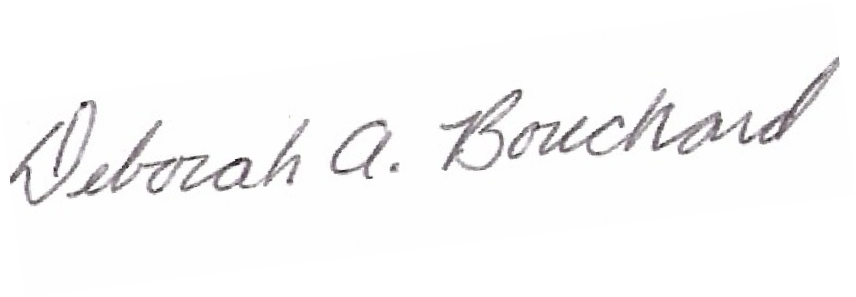 Deborah A. Bouchard